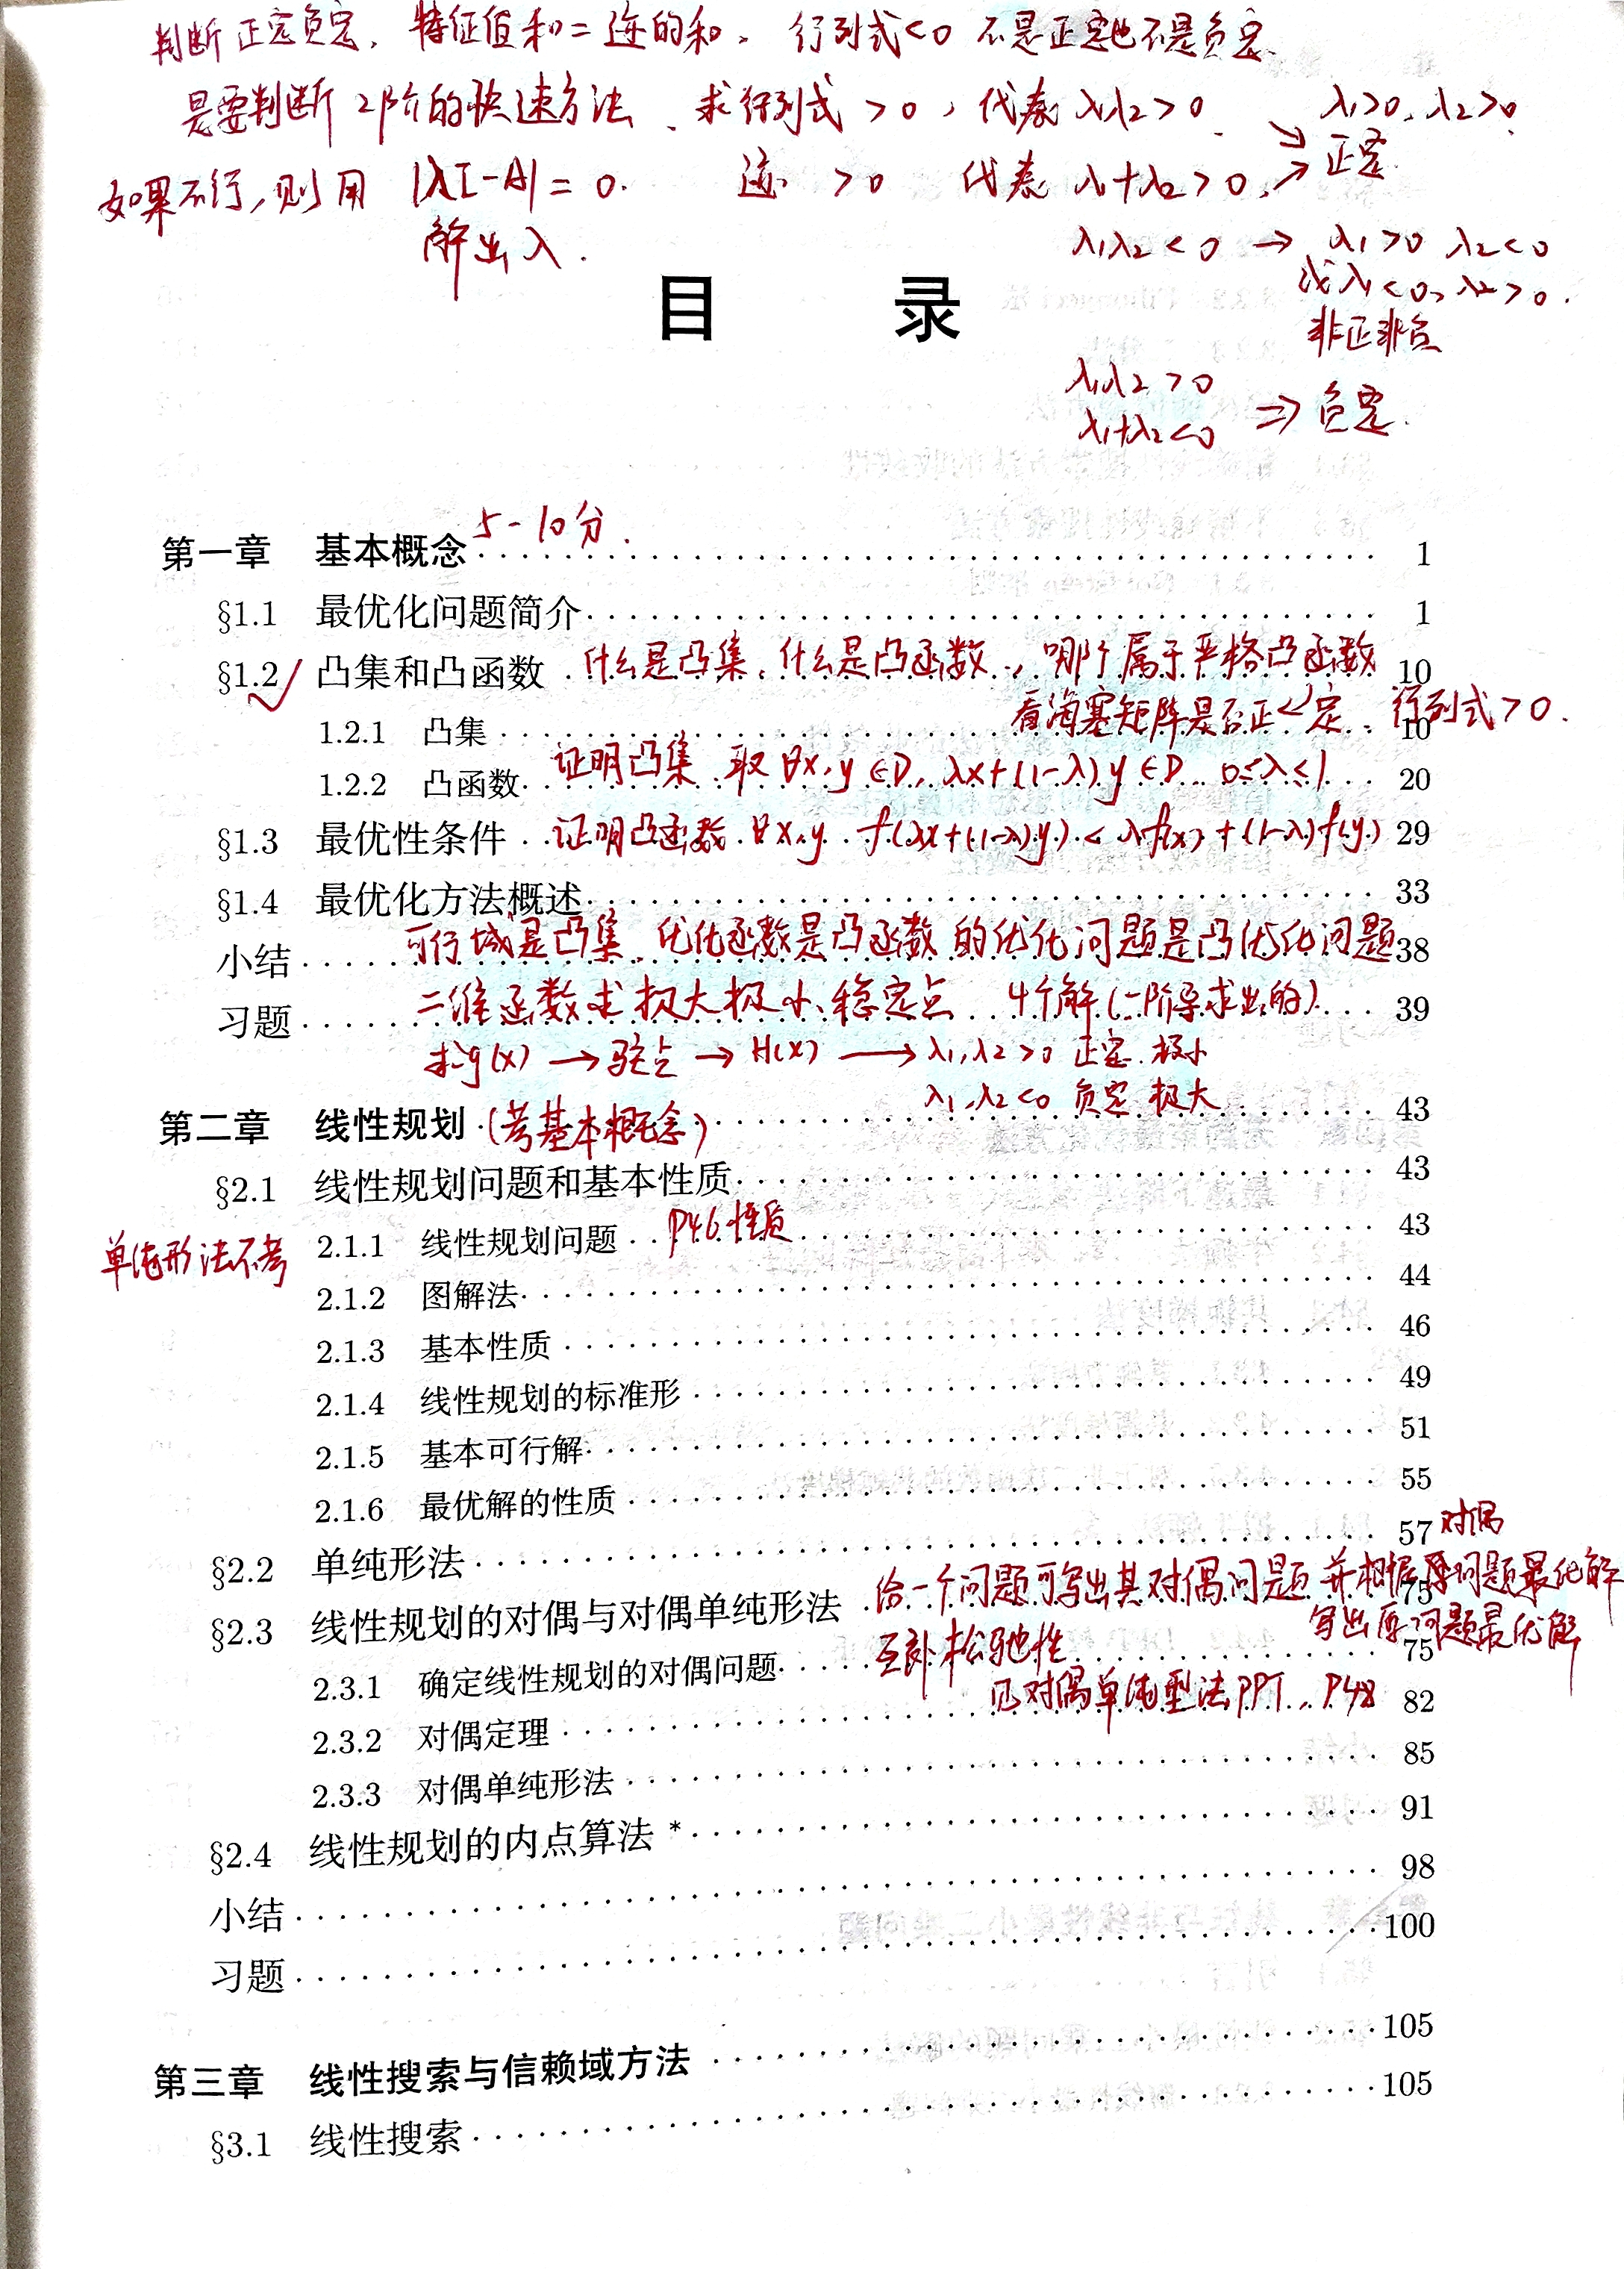 判断正定负定, 特征值和=迹的和. 行列式<0 不是正定也不是负定.
是要判断2阶的快速方法. 求行列式>0, 代表λ₁λ₂>0. λ₁>0, λ₂>0.
正定
如果不行,则用 |λI-A|=0. 迹 >0 代表 λ₁+λ₂>0,
解出λ.
λ₁λ₂<0 → λ₁>0 λ₂<0
或λ₁<0, λ₂>0.
非正非负
目 录
λ₁λ₂>0
λ₁+λ₂<0 ⇒ 负定.
5-10分.
第一章 基本概念 1
§1.1 最优化问题简介 1
§1.2✓ 凸集和凸函数 什么是凸集,什么是凸函数., 哪个属于严格凸函数 10
看海塞矩阵是否正定. 行列式>0.
1.2.1 凸集 10
证明凸集. 取∀x,y∈D, λx+(1-λ)y∈D 0≤λ≤1
1.2.2 凸函数 20
§1.3 最优性条件 证明凸函数.∀x,y. f(λx+(1-λ)y)<λf(x)+(1-λ)f(y) 29
§1.4 最优化方法概述 33
可行域是凸集,优化函数是凸函数的优化问题是凸优化问题
小结 38
二维函数求极大极小、稳定点 4个解(一阶导求出的)
习题 39
求g(x) → 驻点 → H(x) → λ₁,λ₂>0 正定.极小
λ₁,λ₂<0 负定 极大
第二章 线性规划 (考基本概念) 43
§2.1 线性规划问题和基本性质 43
单纯形法不考
2.1.1 线性规划问题 P46.性质 43
2.1.2 图解法 44
2.1.3 基本性质 46
2.1.4 线性规划的标准形 49
2.1.5 基本可行解 51
2.1.6 最优解的性质 55
§2.2 单纯形法 57
对偶
给一个问题可写出其对偶问题 并根据原问题最优解
§2.3 线性规划的对偶与对偶单纯形法 75
写出原问题最优解
互补松弛性
2.3.1 确定线性规划的对偶问题 75
见对偶单纯型法PPT P48
2.3.2 对偶定理 82
2.3.3 对偶单纯形法 85
§2.4 线性规划的内点算法 * 91
小结 98
习题 100
第三章 线性搜索与信赖域方法 105
§3.1 线性搜索 105